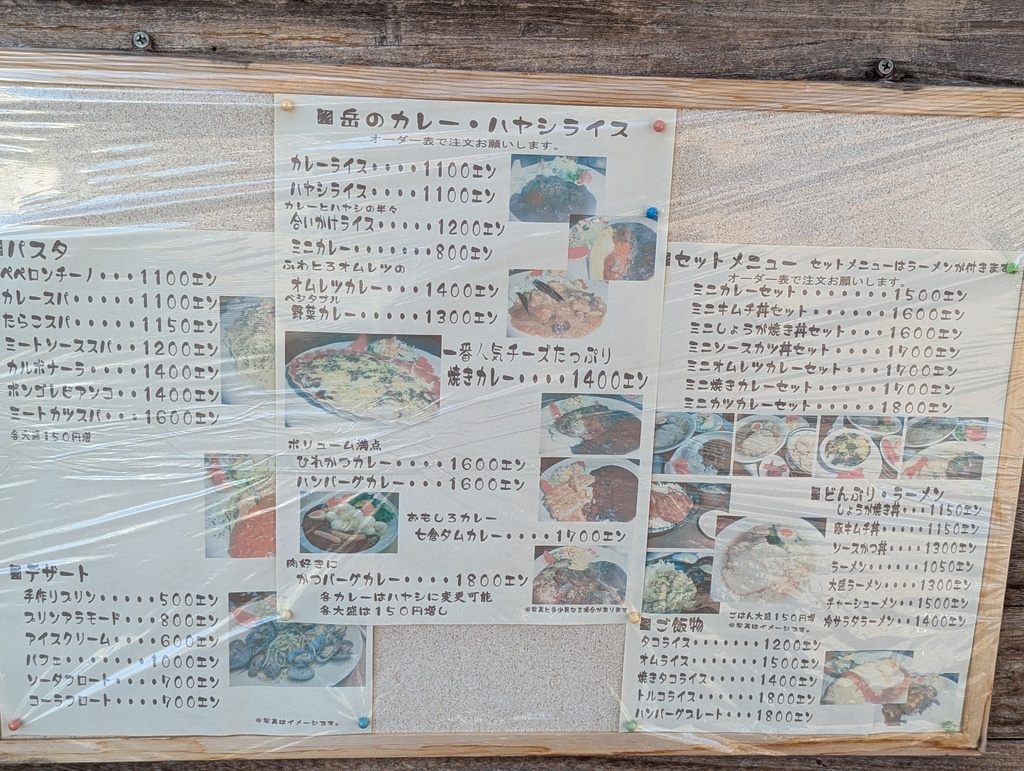 パスタ
ペペロンチーノ・・・1100エン
カレースパ・・・・・1100エン
たらこスパ・・・・・1150エン
ミートソーススパ・・1200エン
カルボナーラ・・・・1400エン
ボンゴレビアンコ・・1400エン
ミートカツスパ・・・1600エン
各大盛150円増
デザート
手作りプリン・・・・500エン
プリンアラモード・・800エン
アイスクリーム・・・600エン
パフェ・・・・・・・1000エン
ソーダフロート・・・700エン
コーラフロート・・・700エン
※写真はイメージです。
岳のカレー・ハヤシライス
オーダー表で注文お願いします。
カレーライス・・・・1100エン
ハヤシライス・・・・1100エン
カレーとハヤシの半々
合いかけライス・・・・・1200エン
ミニカレー・・・・・・800エン
ふわとろオムレツの
オムレツカレー・・・・1400エン
ベジタブル
野菜カレー・・・・・1300エン
一番人気チーズたっぷり
焼きカレー・・・・1400エン
ボリューム満点
ひれかつカレー・・・・1600エン
ハンバーグカレー・・・1600エン
おもしろカレー
七倉ダムカレー・・・・1700エン
肉好きに
かつバーグカレー・・・・1800エン
各カレーはハヤシに変更可能
各大盛は150円増し
※写真と多少異なる場合があります
セットメニュー セットメニューはラーメンが付きます
オーダー表で注文お願いします。
ミニカレーセット・・・・・・1500エン
ミニキムチ丼セット・・・・・・1600エン
ミニしょうが焼き丼セット・・・1600エン
ミニソースカツ丼セット・・・・1700エン
ミニオムレツカレーセット・・・1700エン
ミニ焼きカレーセット・・・・・1700エン
ミニカツカレーセット・・・・・・1800エン
どんぶり・ラーメン
しょうが焼き丼・・・1150エン
豚キムチ丼・・・・・1150エン
ソースかつ丼・・・・1300エン
ラーメン・・・・・・1050エン
大盛ラーメン・・・・1300エン
チャーシューメン・・・1500エン
冷サラダラーメン・・1400エン
ごはん大盛150円増
※写真はイメージです。
ご飯物
タコライス・・・・・・1200エン
オムライス・・・・・・1500エン
焼きタコライス・・・・1400エン
トルコライス・・・・・1800エン
ハンバーグプレート・・・1800エン